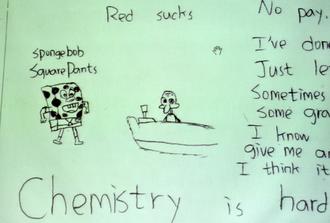 Red sucks
spongebob
SquarePants
No pay.
I've don
Just le
Sometimes
Some gra
I know
give me a
I think it
Chemistry is hard